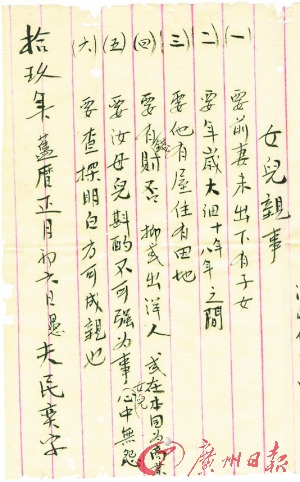 女兒親事
(一) 要前妻未出下有子女
(二) 要年歲大细十八年之間
(三) 要他有屋住有田地
(四) 要有錢財否 抑或出洋人 或在本国為商業
(五) 要汝母兒斟酌不可强為事 女兒心中無怨
(六) 要查探明白方可成親也
拾玖年舊曆正月初六日愚夫民奕字
廣州日報